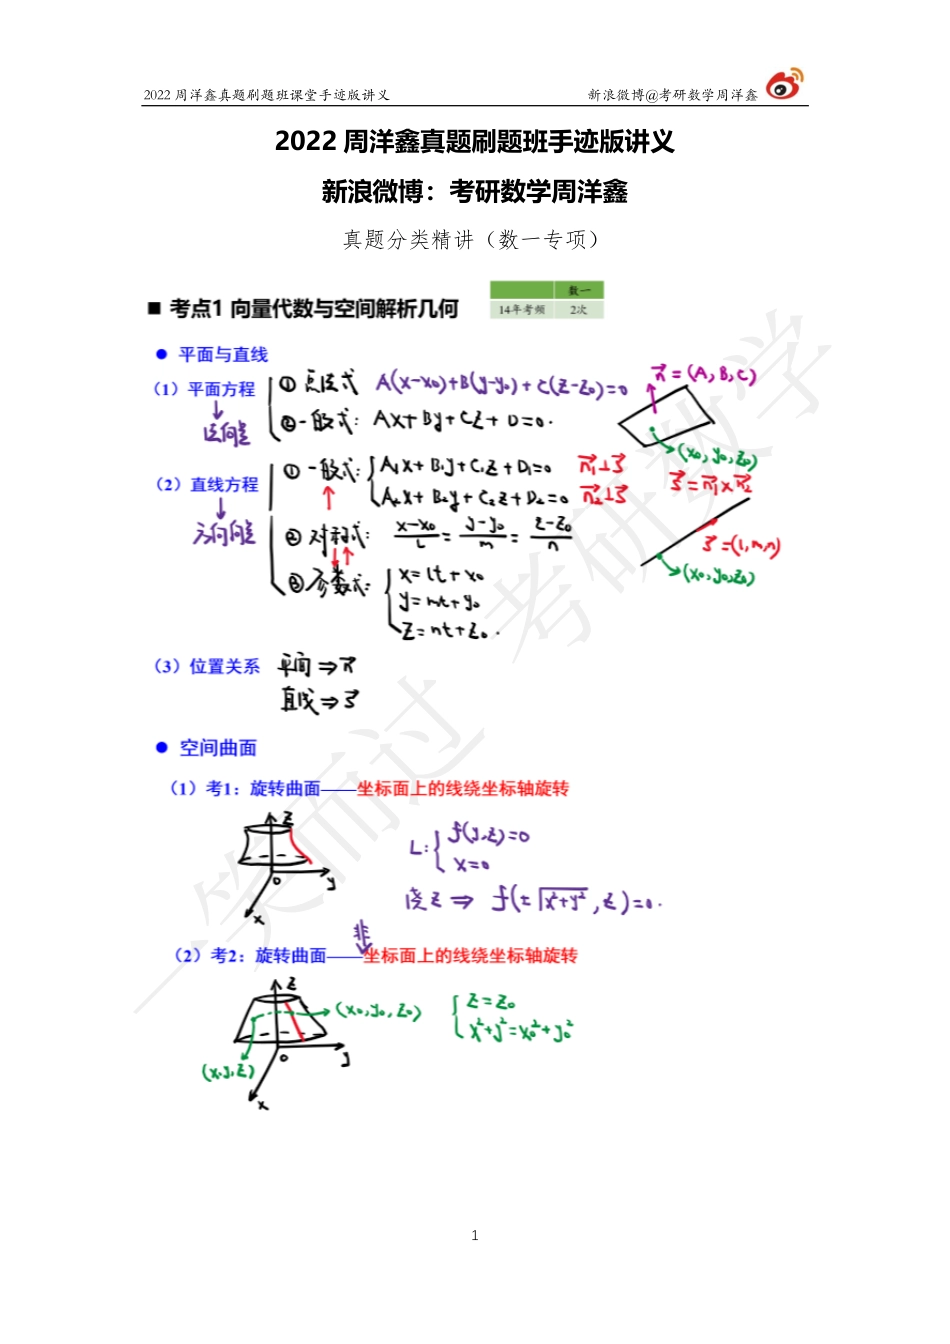 2022 周洋鑫真题刷题班课堂手迹版讲义 新浪微博@考研数学周洋鑫
2022 周洋鑫真题刷题班手迹版讲义
新浪微博：考研数学周洋鑫
真题分类精讲（数一专项）
■ 考点1 向量代数与空间解析几何
数一
14年考频 2次
● 平面与直线
（1）平面方程
↓
法向量
① 点法式 A(x-x₀)+B(y-y₀)+C(z-z₀)=0
②一般式: Ax+By+Cz+D=0.
n⃗=(A,B,C)
(x₀,y₀,z₀)
（2）直线方程
↓
方向向量
① 一般式: { A₁x+B₁y+C₁z+D₁=0 n⃗₁⊥s⃗
A₂x+B₂y+C₂z+D₂=0 n⃗₂⊥s⃗
s⃗=n⃗₁×n⃗₂
② 对称式: (x-x₀)/l = (y-y₀)/m = (z-z₀)/n
s⃗=(l,m,n)
(x₀,y₀,z₀)
③参数式: { x=lt+x₀
y=mt+y₀
z=nt+z₀.
（3）位置关系 平面⇒n⃗
直线⇒s⃗
● 空间曲面
（1）考1：旋转曲面——坐标面上的线绕坐标轴旋转
z
o
y
x
L:{ f(y,z)=0
x=0
绕z ⇒ f(±√(x²+y²),z)=0.
非
（2）考2：旋转曲面——坐标面上的线绕坐标轴旋转
z
(x₀,y₀,z₀)
(x,y,z)
o
y
x
{ z=z₀
x²+y²=x₀²+y₀²
一笑而过 考研数学
1